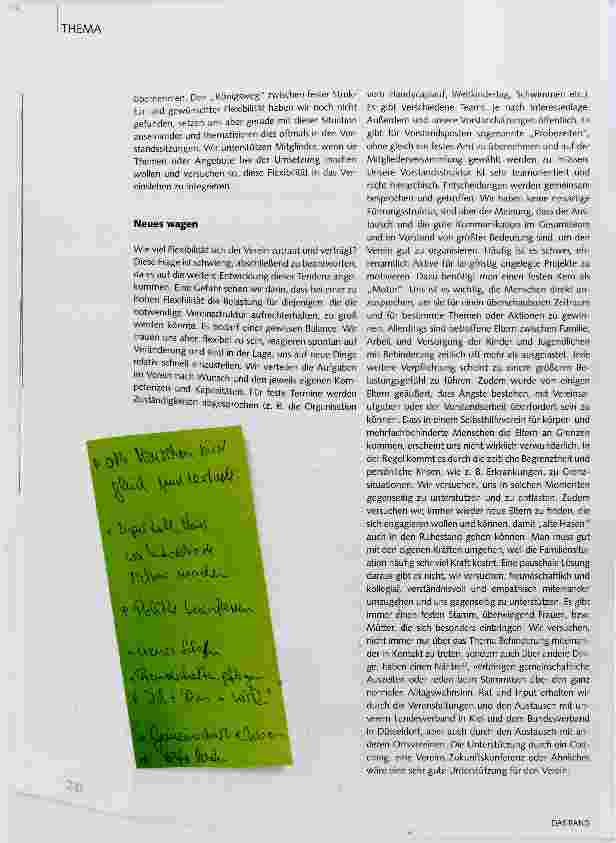 THEMA
übernehmen. Den „Königsweg“ zwischen fester Struk-
tur und gewünschter Flexibilität haben wir noch nicht
gefunden, setzen uns aber gerade mit dieser Situation
auseinander und thematisieren dies oftmals in den Vor-
standssitzungen. Wir unterstützen Mitglieder, wenn sie
Themen oder Angebote bei der Umsetzung machen
wollen und versuchen so, diese Flexibilität in das Ver-
einsleben zu integrieren.
Neues wagen
Wie viel Flexibilität sich der Verein zutraut und verträgt?
Diese Frage ist schwierig, abschließend zu beantworten,
da es auf die weitere Entwicklung dieser Tendenz ange
kommen. Eine Gefahr sehen wir darin, dass bei einer zu
hohen Flexibilität die Belastung für diejenigen, die die
notwendige Vereinsstruktur aufrechterhalten, zu groß
werden könnte. Es bedarf einer gewissen Balance. Wir
trauen uns aber, flexibel zu sein, reagieren spontan auf
Veränderung und sind in der Lage, uns auf neue Dinge
relativ schnell einzustellen. Wir verteilen die Aufgaben
im Verein nach Wunsch und den jeweils eigenen Kom-
petenzen und Kapazitäten. Für feste Termine werden
Zuständigkeiten abgesprochen (z. B. die Organisation
vom Handycaplauf, Weltkindertag, Schwimmen etc.).
Es gibt verschiedene Teams, je nach Interessenlage.
Außerdem sind unsere Vorstandssitzungen öffentlich. Es
gibt für Vorstandsposten sogenannte „Probezeiten“,
ohne gleich ein festes Amt zu übernehmen und auf der
Mitgliederversammlung gewählt werden zu müssen.
Unsere Vorstandsstruktur ist sehr teamorientiert und
nicht hierarchisch. Entscheidungen werden gemeinsam
besprochen und getroffen. Wir haben keine neuartige
Führungsstruktur, sind aber der Meinung, dass der Aus-
tausch und die gute Kommunikation im Gesamtteam
und im Vorstand von größter Bedeutung sind, um den
Verein gut zu organisieren. Häufig ist es schwer, eh-
renamtlich Aktive für langfristig angelegte Projekte zu
motivieren. Dazu benötigt man einen festen Kern als
„Motor“. Uns ist es wichtig, die Menschen direkt an-
zusprechen, um sie für einen überschaubaren Zeitraum
und für bestimmte Themen oder Aktionen zu gewin-
nen. Allerdings sind betroffene Eltern zwischen Familie,
Arbeit und Versorgung der Kinder und Jugendlichen
mit Behinderung zeitlich oft mehr als ausgelastet. Jede
weitere Verpflichtung scheint zu einem größeren Be-
lastungsgefühl zu führen. Zudem wurde von einigen
Eltern geäußert, dass Ängste bestehen, mit Vereinsa-
ufgaben oder der Vorstandsarbeit überfordert sein zu
können. Dass in einem Selbsthilfeverein für körper- und
mehrfachbehinderte Menschen die Eltern an Grenzen
kommen, erscheint uns nicht wirklich verwunderlich. In
der Regel kommt es durch die zeitliche Begrenztheit und
persönliche Krisen, wie z. B. Erkrankungen, zu Grenz-
situationen. Wir versuchen, uns in solchen Momenten
gegenseitig zu unterstützen und zu entlasten. Zudem
versuchen wir, immer wieder neue Eltern zu finden, die
sich engagieren wollen und können, damit „alte Hasen“
auch in den Ruhestand gehen können. Man muss gut
mit den eigenen Kräften umgehen, weil die Familiensitu-
ation häufig sehr viel Kraft kostet. Eine pauschale Lösung
daraus gibt es nicht, wir versuchen, freundschaftlich und
kollegial, verständnisvoll und empathisch miteinander
umzugehen und uns gegenseitig zu unterstützen. Es gibt
immer einen festen Stamm, überwiegend Frauen, bzw.
Mütter, die sich besonders einbringen. Wir versuchen,
nicht immer nur über das Thema Behinderung miteinan-
der in Kontakt zu treten, sondern auch über andere Din-
ge, haben einen Nähtreff, verbringen gemeinschaftliche
Auszeiten oder reden beim Stammtisch über den ganz
normalen Alltagswahnsinn. Rat und Input erhalten wir
durch die Veranstaltungen und den Austausch mit un-
serem Landesverband in Kiel und dem Bundesverband
in Düsseldorf, aber auch durch den Austausch mit an-
deren Ortsvereinen. Die Unterstützung durch ein Coa-
ching, eine Vereins-Zukunftskonferenz oder Ähnliches
wäre eine sehr gute Unterstützung für den Verein.
Politik beeinflussen
Gemeinschaft erleben
20
DAS BAND